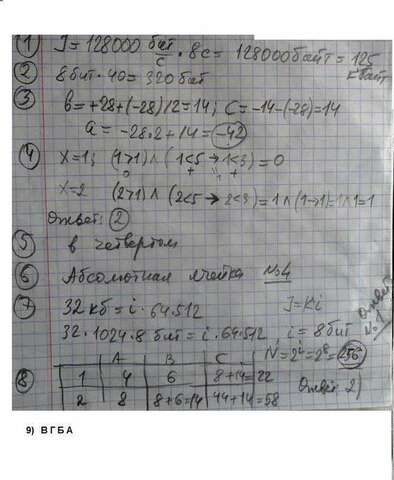 1 J = 128000 бит/с · 8с = 128000 байт = 125 Кбайт
2 8 бит · 40 = 320 бит
3 в = +28+(-28)/2=14; С = -14-(-28)=14
а = -28·2+14 = -42
4 X=1; (1>1) ∧ (1<5 → 1<3) = 0
X=2 (2>1) ∧ (2<5 → 2<3) = 1∧(1→1)=1∧1=1
Ответ: 2
5 в четвертом
6 Абсолютная ячейка №4
7 32 кб = i · 64.512 J=Ki
32·1024·8 бит = i · 64.512, i = 8 бит
N=2ⁱ=2⁸=256
Ответ №1
A B C
8 1 4 6 8+14=22 Ответ 2)
2 8 8+6=14 44+14=58
9) В Г Б А